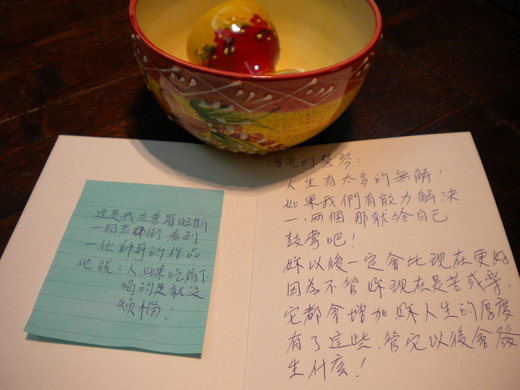 漂亮的
人生有太多的無解!
如果我們有能力解決
一、兩個 那就給自己
鼓掌吧!
妳以後一定會比現在更好
因為不管妳現在是苦或樂,
它都會增加妳人生的厚度
有了這些, 管它以後會發
生什麼!
這是我在普羅旺斯
一個老 看到
一位帥哥的作品
他說:人如果吃
的是就沒
煩惱!